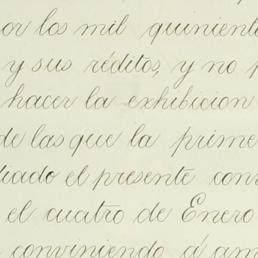 por los mil quinient
y sus réditos, y no p
hacer la exhibicion
de las que la prime
ciado el presente con
el cuatro de Enero
conviniendo á am